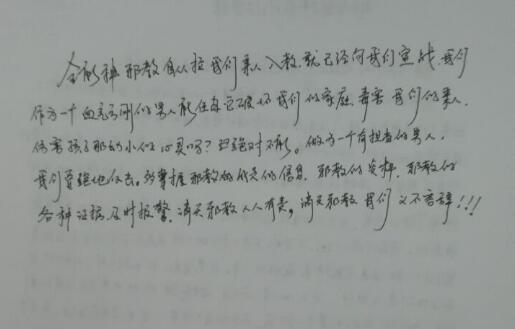 全能神邪教自从拉我们亲人入教,就已经向我们宣战,我们
作为一个血气方刚的男人能任由它破坏我们的家庭,毒害我们的亲人,
伤害孩子那幼小的心灵吗?绝对不能。做为一个有担当的男人,
我们要强地反击。掌握邪教的信息,邪教的资料,邪教的
各种证据及时报警,消灭邪教人人有责,消灭邪教我们义不容辞!!!